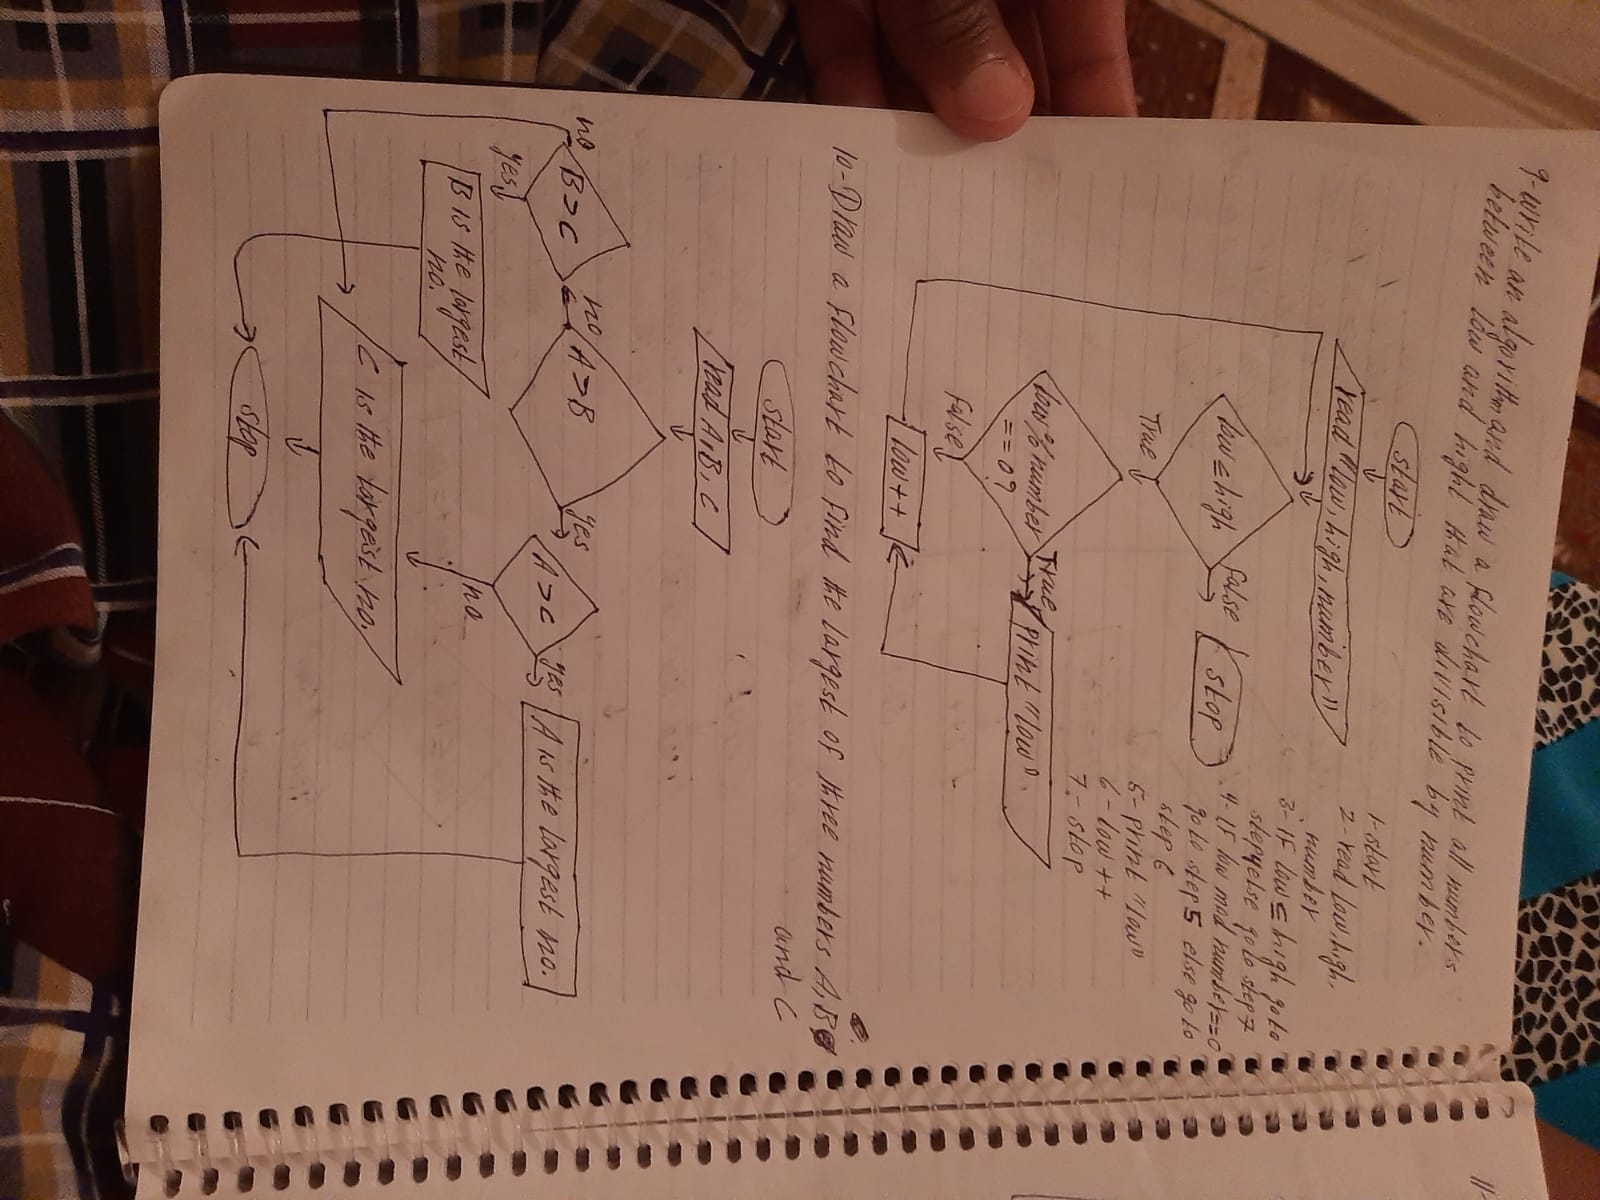 9-write an algorithm and draw a flowchart to print all numbers
between low and high that are divisible by number.
start
read "low, high, number"
low ≤ high
False
stop
True
low % number
== 0?
True
print "low"
False
low++
1-start
2-read low, high,
number
3-if low ≤ high go to
step 4 else go to step 7
4-if low mod number == 0
go to step 5 else go to
step 6
5-print "low"
6-low ++
7-stop
10-Draw a flowchart to find the largest of three numbers A, B
and C
start
read A, B, C
A > B
no
yes
B > C
no
yes
A > C
yes
no
B is the largest
no.
A is the largest no.
C is the largest no.
stop
11-